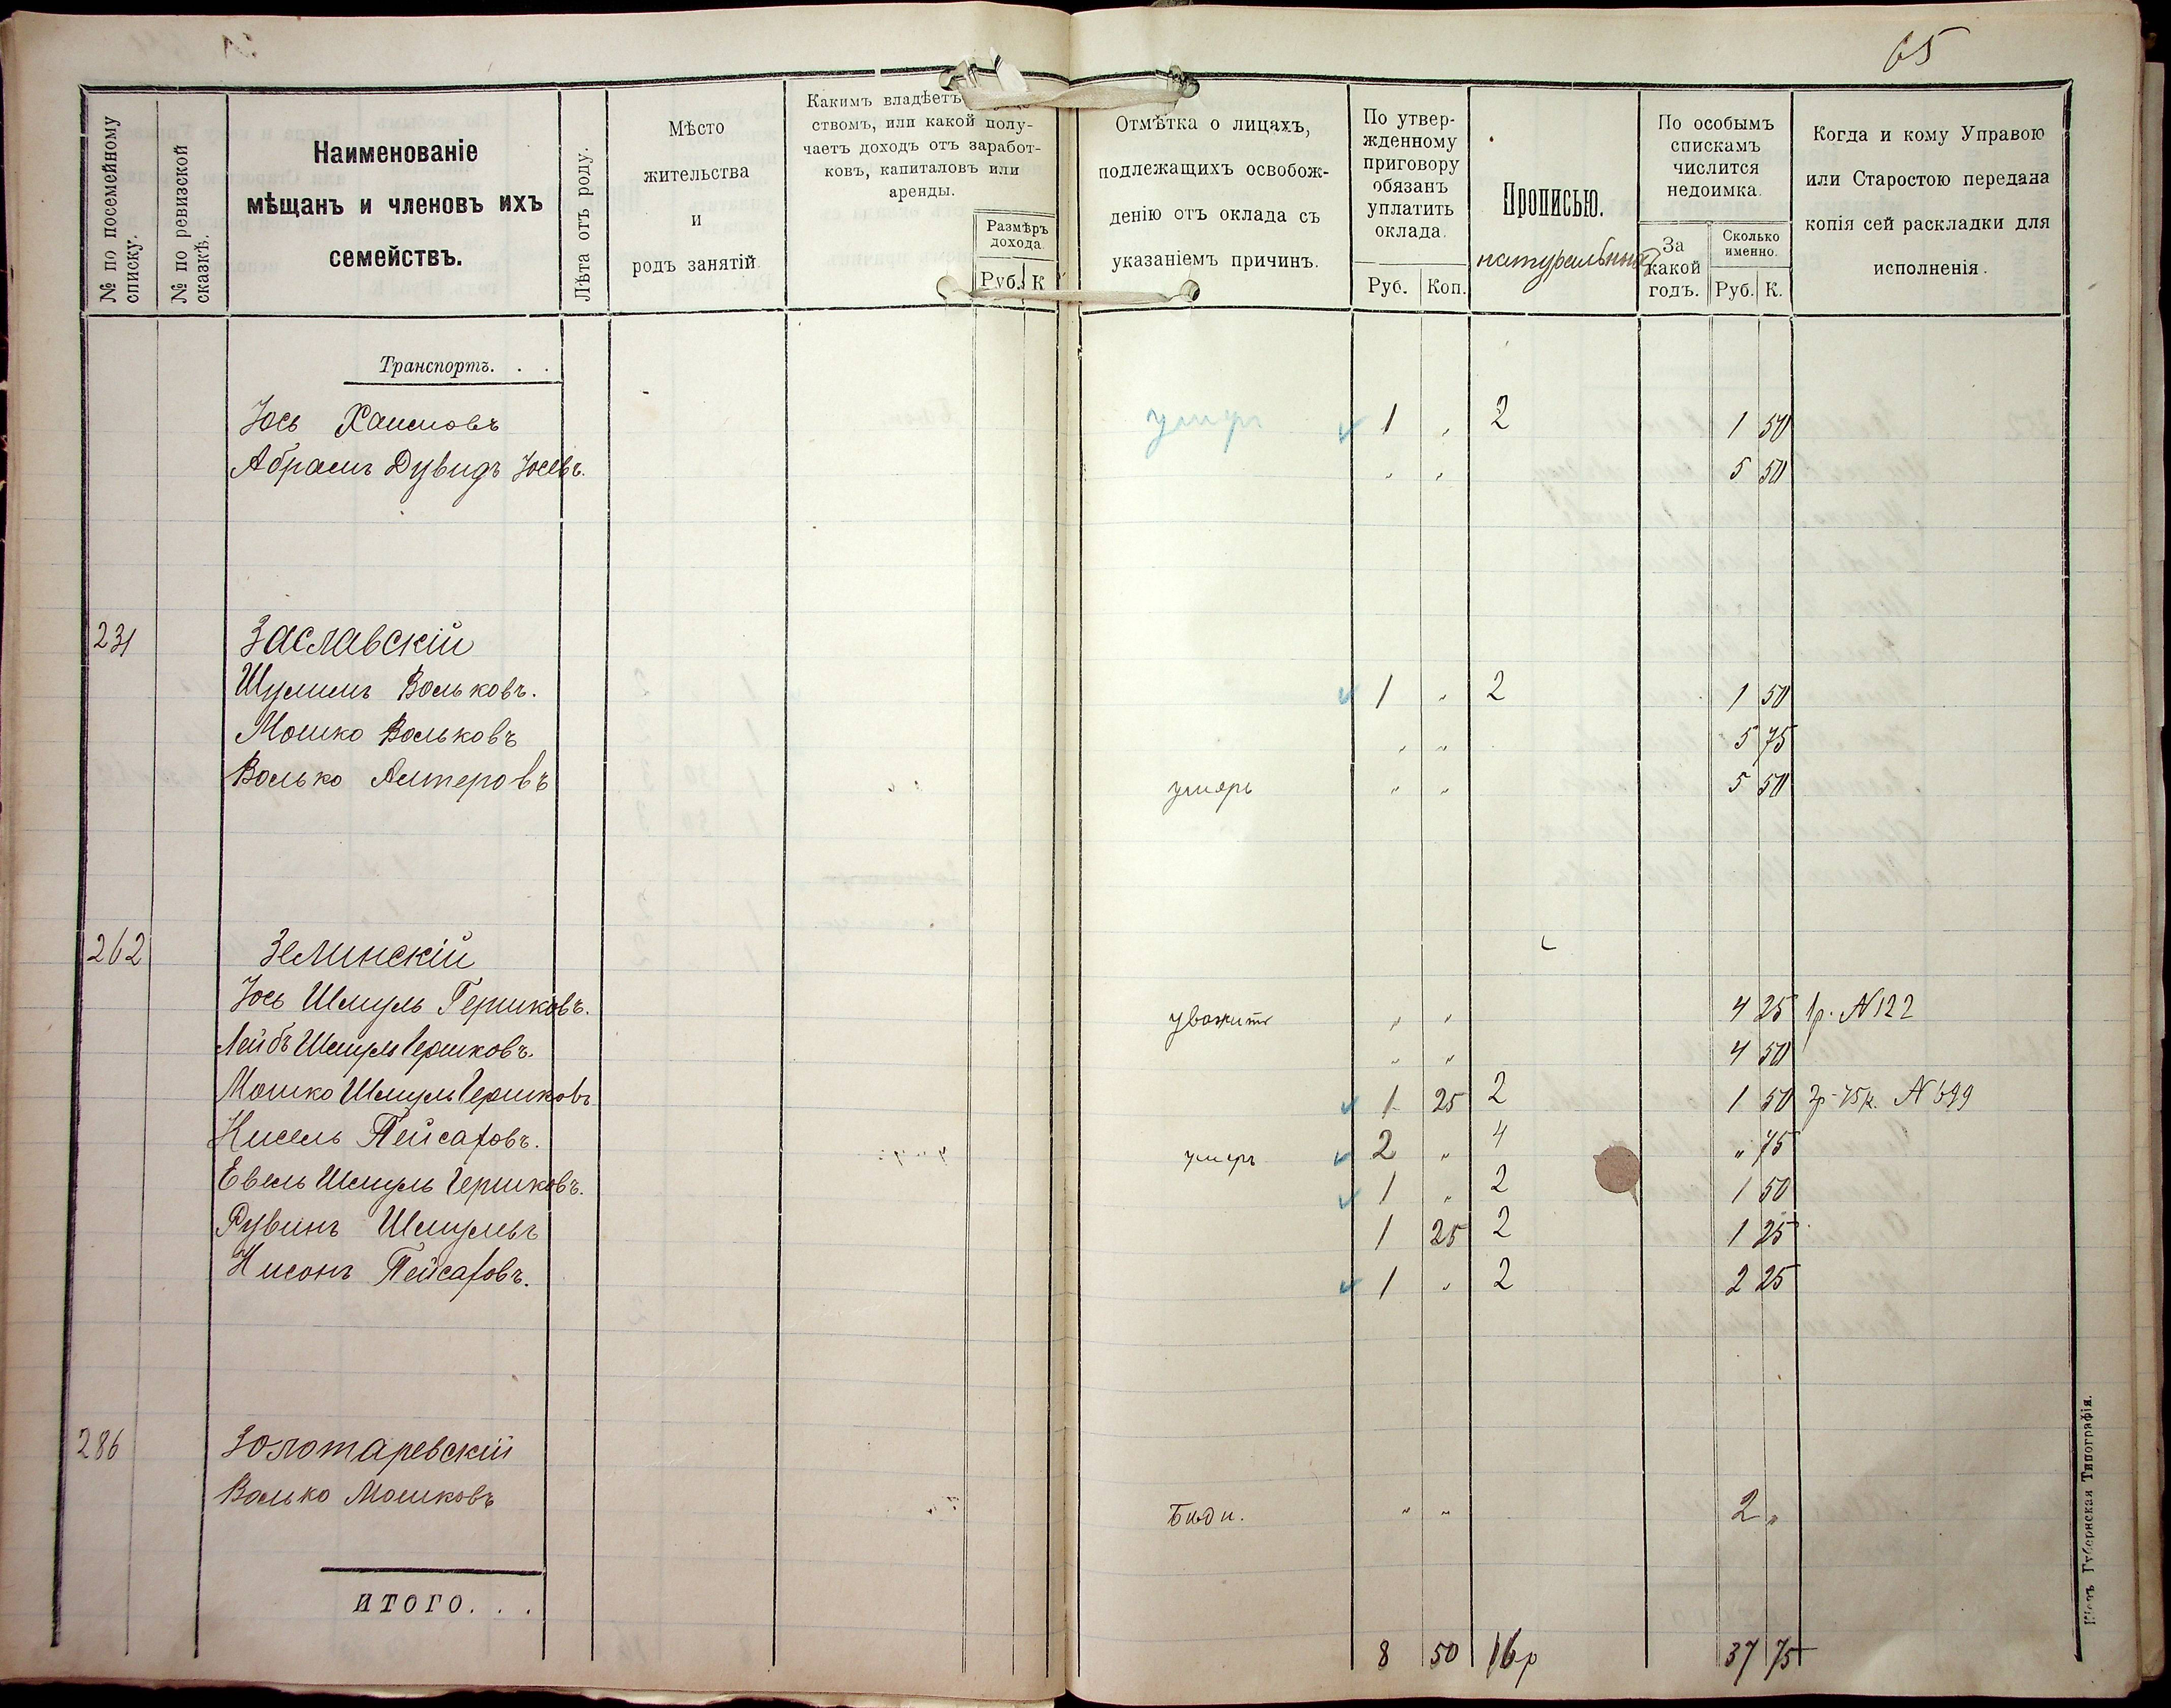 65
№ по посемейному списку.
№ по ревизской сказкѣ.
Наименованіе
мѣщанъ и членовъ ихъ
семействъ.
Лѣта отъ роду.
Мѣсто
жительства
и
родъ занятій
Какимъ владѣетъ
ствомъ, или какой полу-
чаетъ доходъ отъ заработ-
ковъ, капиталовъ или
аренды.
Размѣръ
дохода.
Руб. К
Отмѣтка о лицахъ,
подлежащихъ освобож-
денію отъ оклада съ
указаніемъ причинъ.
По утвер-
жденному
приговору
обязанъ
уплатить
оклада.
Руб. Коп.
Прописью.
натуральный
По особымъ
спискамъ
числится
недоимка.
За
какой
годъ.
Сколько
именно.
Руб. К.
Когда и кому Управою
или Старостою передана
копія сей раскладки для
исполненія.
Транспортъ. . .
Іось Хаимовъ умеръ 1 " 2 1 50
Абрамъ Дувидъ Іосевъ. " " 5 50
231 Заславскій
Шулимъ Вольковъ. 1 " 2 1 50
Мошко Вольковъ " " 5 75
Волько Алтеровъ умеръ " " 5 50
262 Зелинскій
Іось Шмуль Гершковъ. уважить " " 4 25 1р. №122
Лейбъ Шмуль Гершковъ. " " 4 50
Мошко Шмуль Гершковъ 1 25 2 1 50 2р-75к. №699
Нисель Пейсаховъ. умеръ 2 " 4 " 75
Евель Шмуль Гершковъ. 1 " 2 1 50
Рувинъ Шмулевъ 1 25 2 1 25
Нисонъ Пейсаховъ. 1 " 2 2 25
286 Золотаревскій
Волько Мошковъ Бѣдн. " " 2 "
ИТОГО. . .
8 50 16р 37 75
Кіевъ Губернская Типографія.